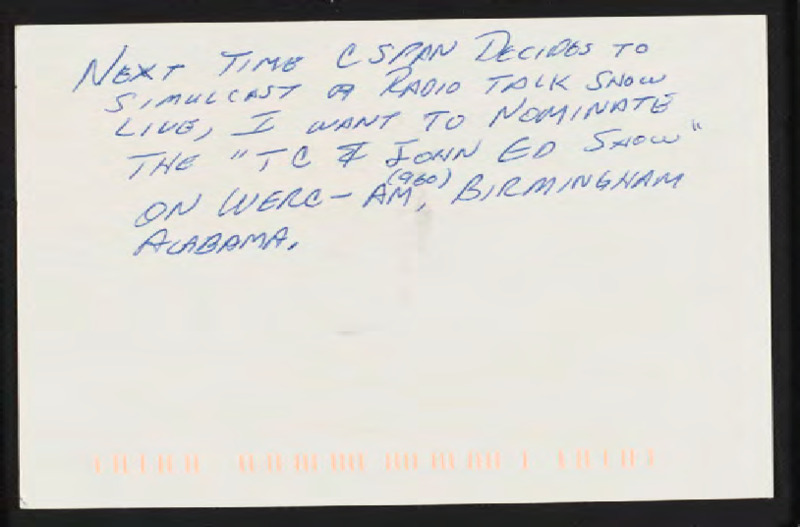 NEXT TIME CSPAN DECIDES TO
SIMULCAST A RADIO TALK SHOW
LIVE, I WANT TO NOMINATE
THE "TC & JOHN ED SHOW"
(960)
ON WERC-AM, BIRMINGHAM
ALABAMA.